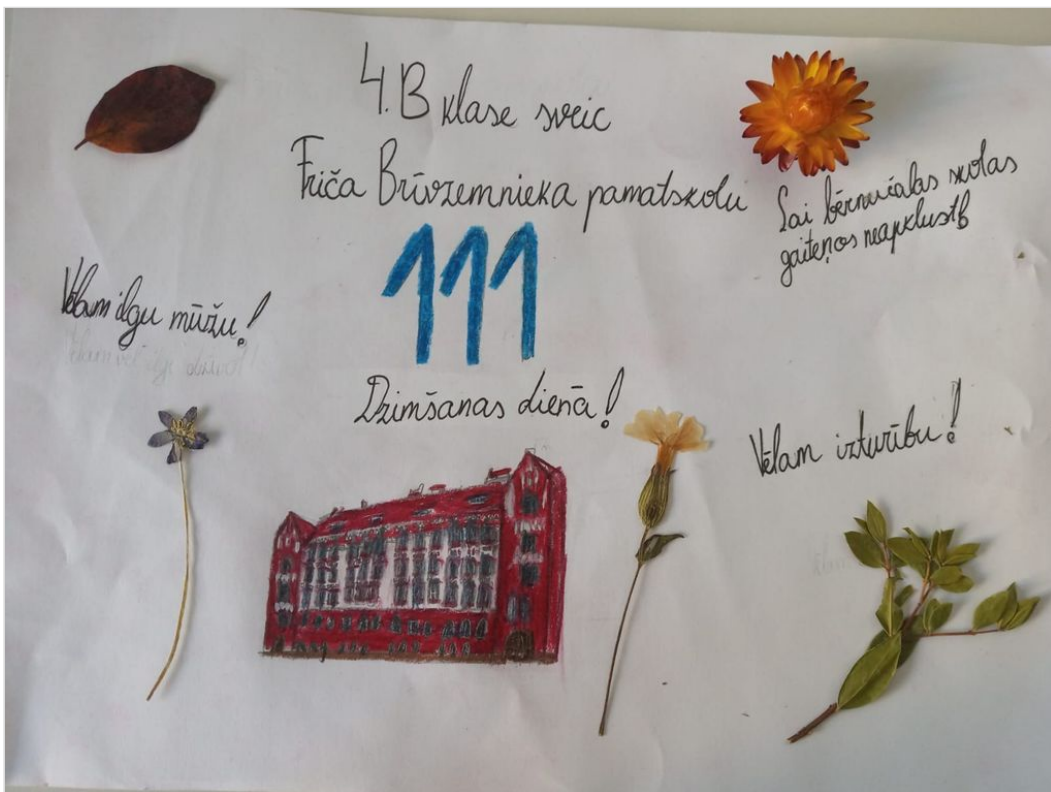 4. B klase sveic
Friča Brīvzemnieka pamatskolu
111
Dzimšanas dienā!
Lai bērnu čalas skolas
gaiteņos neapklust
Vēlam ilgu mūžu!
Vēlam izturību!